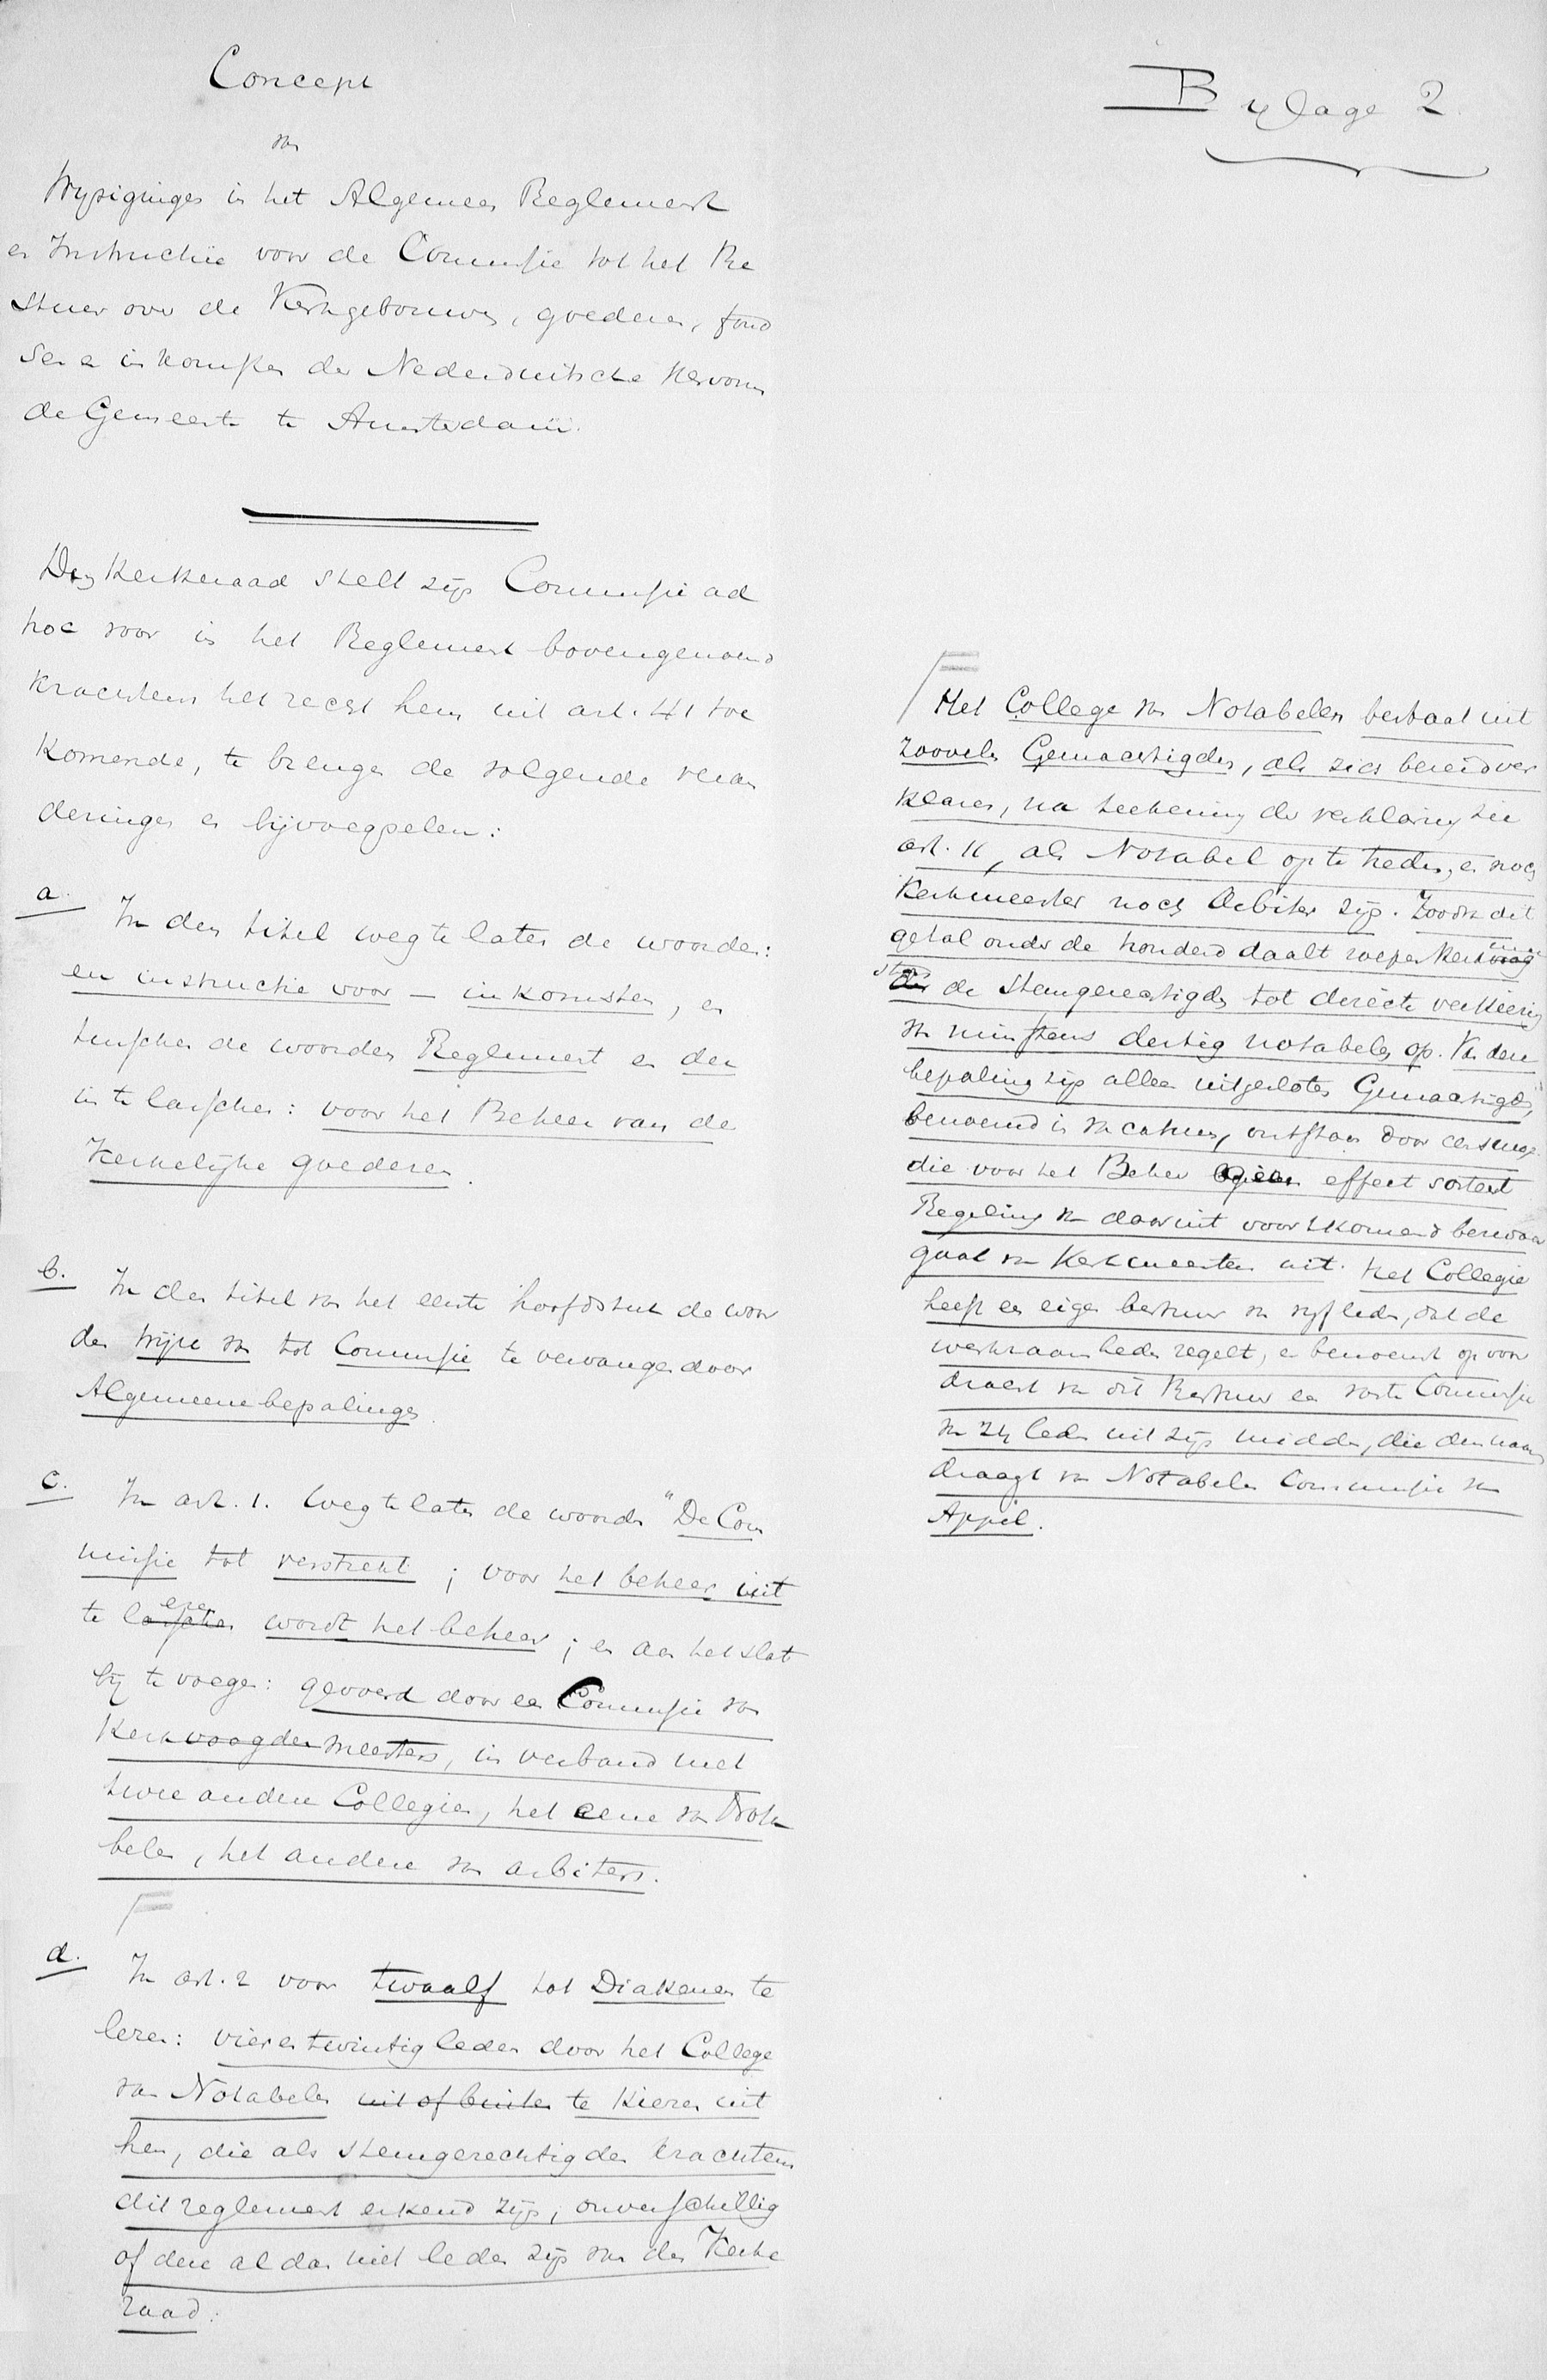 Concept
van
Wijzigingen in het Algemeen Reglement
en Instructie voor de Commissie tot het Be
stuur over de Kerkgebouwen, goederen, fond
sen en inkomsten der Nederduitsche Hervorm
de Gemeente te Amsterdam.
Den Kerkeraad stelt zijn Commissie ad
hoc voor in het Reglement bovengenoemd
krachtens het recht hem uit art. 41 toe
komende, te brengen de volgende veran
deringen en bijvoegselen:
a. In den titel weg te laten de woorden:
en instructie voor — inkomsten, en
tusschen de woorden Reglement en der
in te lasschen: voor het Beheer van de
Kerkelijke goederen.
b. In den titel van het eerste hoofdstuk de woor
den wijze van tot Commissie te vervangen door
Algemeene bepalingen.
c. In art. 1. weg te laten de woorden "De Com
missie tot verstrekt; voor het beheer uit
te lezen wordt het beheer; en aan het slot
bij te voegen: gevoerd door een Commissie van
Kerkvoogden meesters, in verband met
twee andere Collegien, het eene van Nota
belen, het andere van arbiters.
F
d. In art. 2 voor twaalf tot Diakenen te
lezen: vier en twintig leden door het College
van Notabelen uit of buiten te kiezen uit
hen, die als stemgerechtigden krachtens
dit reglement erkend zijn, onverschillig
of deze al dan niet leden zijn van den Kerke
raad.
Bijlage 2.
F
Het College van Notabelen bestaat uit
zoovele Gemachtigden, als zich bereid ver
klaren, na teekening der verklaring zie
art. 11, als Notabel op te treden, en noch
Kerkmeester noch Arbiter zijn. Zoodra dit
getal onder de honderd daalt roepen Kerkmee
sters de stemgerechtigden tot directe verkiezing
van minstens dertig notabelen op. Van deze
bepaling zijn alleen uitgesloten Gemachtigden,
benoemd in vacatures, ontstaan door censuur
die voor het Beheer geen effect sorteert
Regeling van daaruit voortkomend bezwaar
gaat van Kerkmeesters uit. Het Collegie
heeft een eigen bestuur van vijf leden, dat de
werkzaamheden regelt, en benoemt op voor
dracht van dit Bestuur een vaste Commissie
van 24 leden uit zijn midden, die den naam
draagt van Notabelen Commissie van
Appèl.